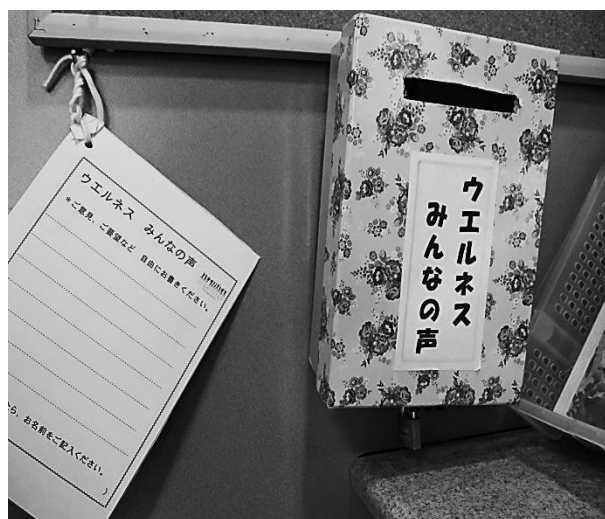 ウエルネス みんなの声
*ご意見、ご要望など 自由にお書きください。
ら、お名前をご記入ください。
)
ウエルネス
みんなの声